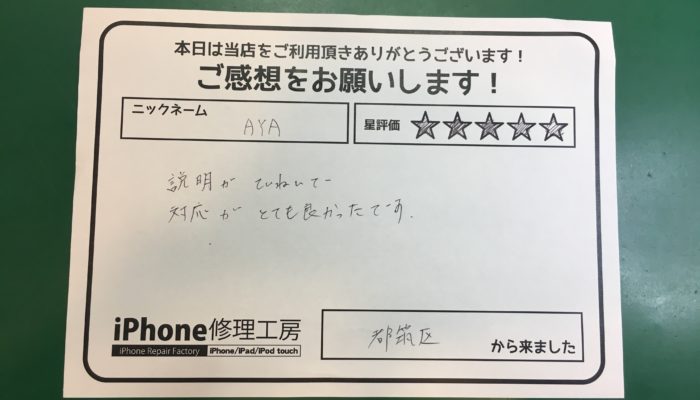 本日は当店をご利用頂きありがとうございます！
ご感想をお願いします！
ニックネーム
AYA
星評価
説明がていねいで
対応がとても良かったです.
iPhone修理工房
iPhone Repair Factory iPhone/iPad/iPod touch
都筑区
から来ました